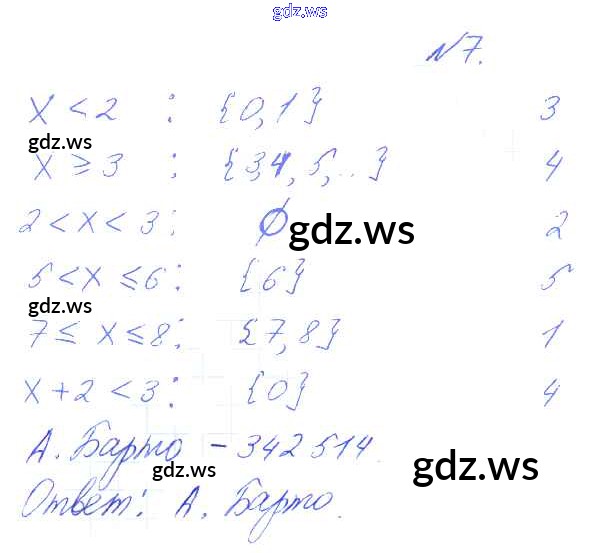 gdz.ws
N7.
x < 2 : {0,1} 3
gdz.ws
x ≥ 3 : {3,4, 5, ..} 4
2 < x < 3: ∅ 2
gdz.ws
5 < x ≤ 6: {6} 5
gdz.ws
7 ≤ x ≤ 8: {7,8} 1
x + 2 < 3: {0} 4
А. Барто - 342514.
gdz.ws
gdz.ws
Ответ: А. Барто.